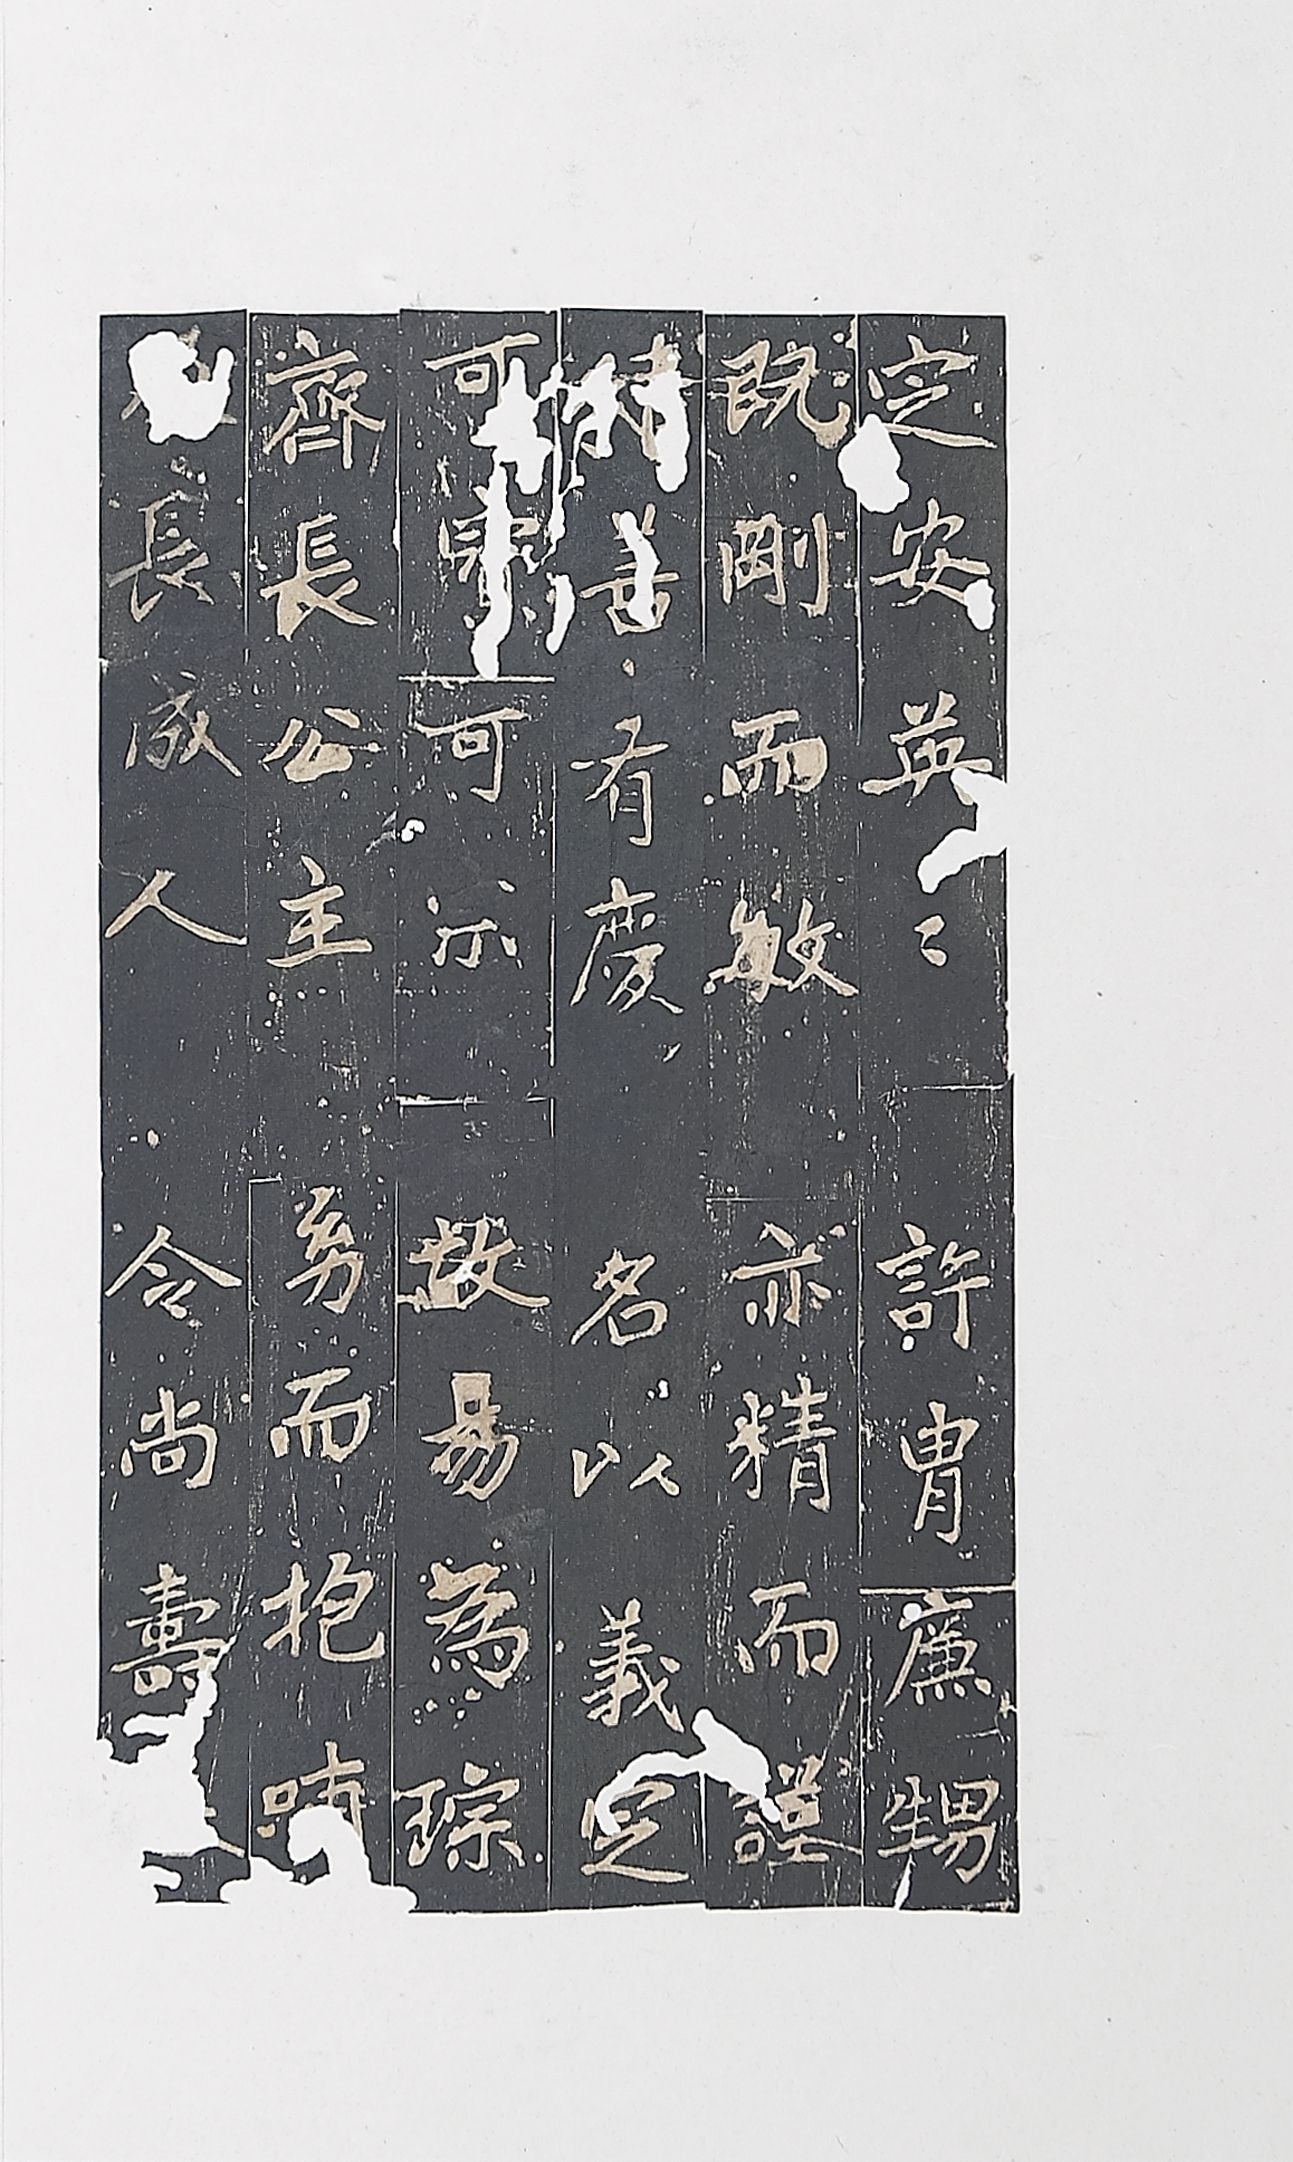 定安英〻許胄廉甥
既剛而敏亦精而謹
善有慶名以義定
可可示故易為琮
齊長公主幼而抱
長成人令尚壽